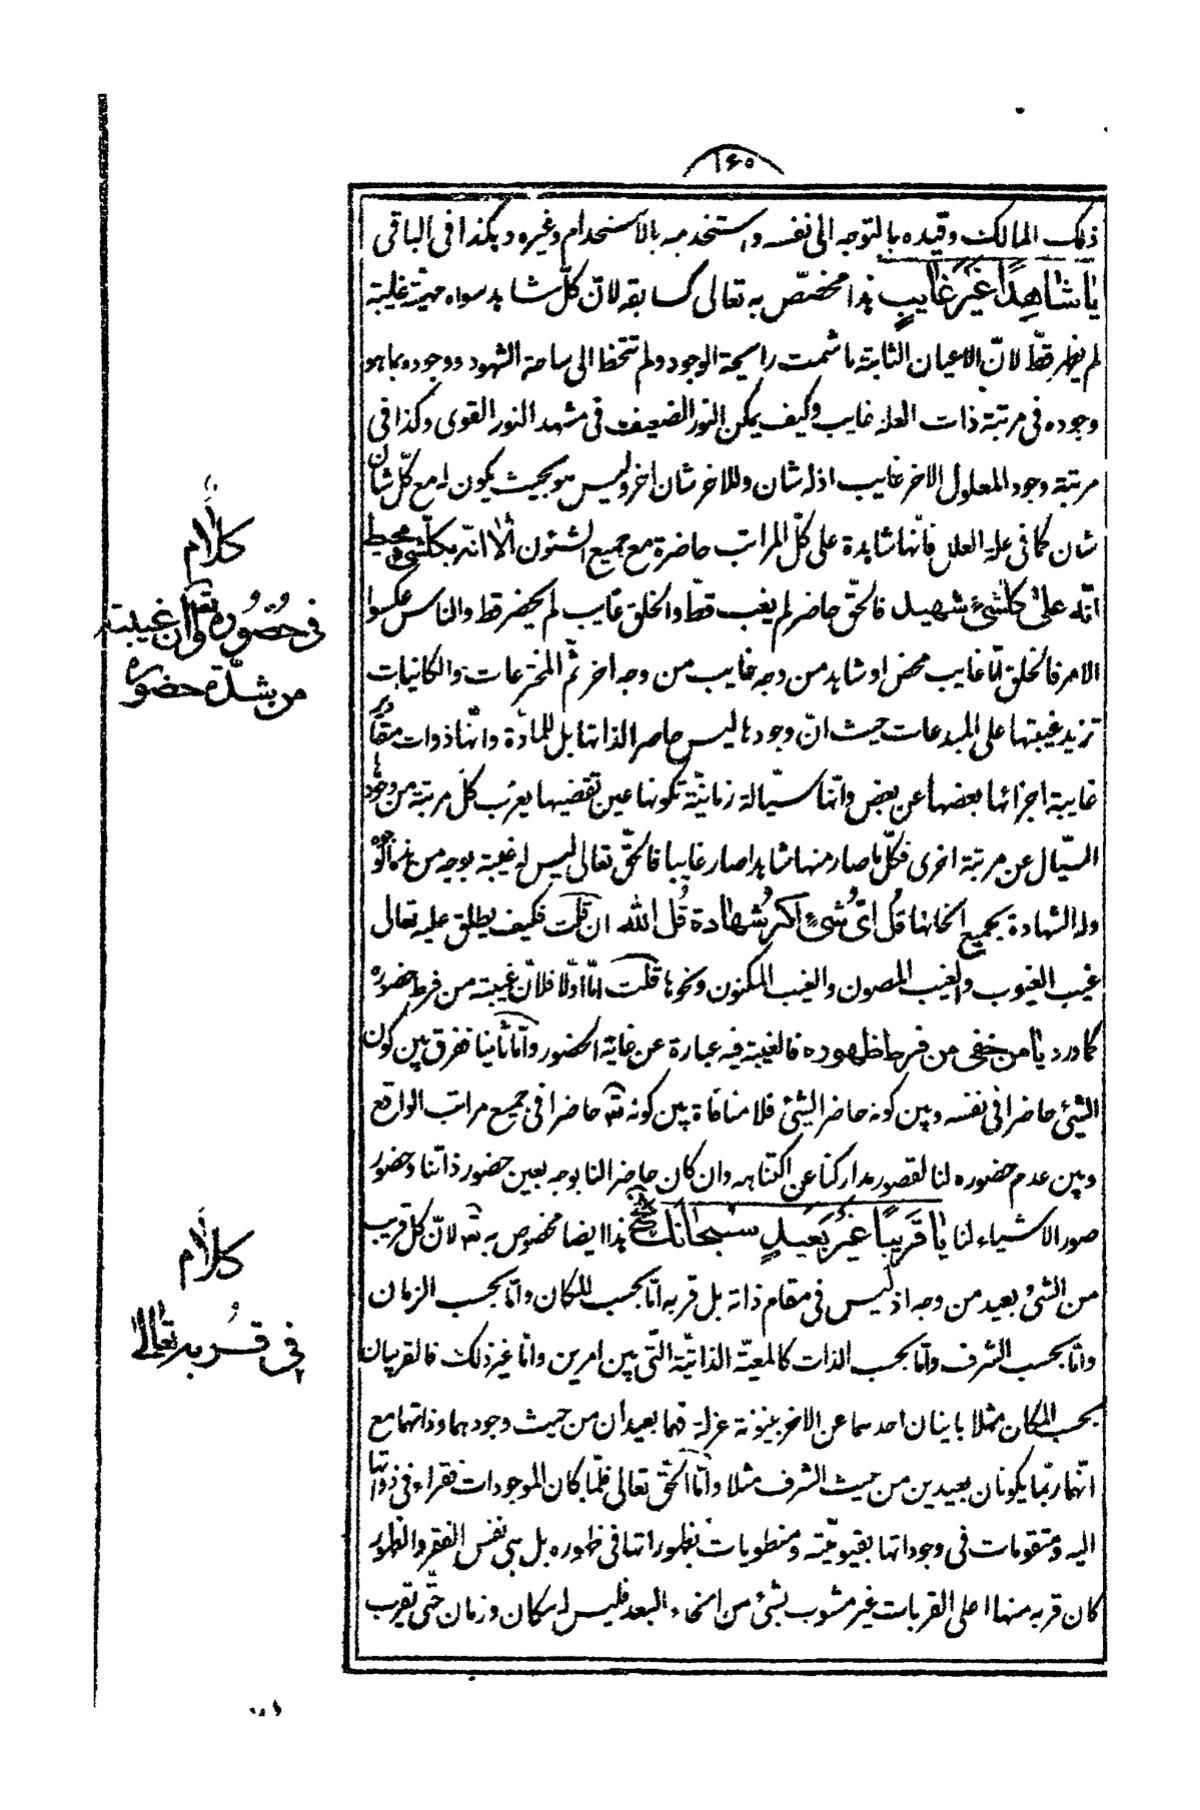 ١٦٠
ذلك المالك وقيده بالتوجه الى نفسه واستخدمه بالاستخدام وغيره وهكذا فى الباقى
يا شاهدا غير غايب هذا مختص به تعالى كسابقه لان كل شاهد سواه مهيته غايبة
لم يظهر قط لان الاعيان الثابتة ما شمت رايحة الوجود ولم تتخط الى ساحة الشهود ووجوده بما هو
وجوده فى مرتبة ذات العلة غايب وكيف يمكن النور الضعيف فى مشهد النور القوى وكذا فى
مرتبة وجود المعلول الاخر غايب اذ له شان وللاخر شان اخر وليس هو بحيث يكون له مع كل شان
شان كما فى علة العلل فانها شاهدة على كل المراتب حاضرة مع جميع الشئون الا انه بكل شئ محيط
انه على كل شئ شهيد فالحق حاضر لم يغب قط والخلق غايب لم يحضر قط والناس عكسوا
الامر فالخلق اما غايب محض او شاهد من وجه غايب من وجه اخر ثم المخترعات والكاينات
تزيد غيبتها على المبدعات حيث ان وجودها ليس حاضرا لذاتها بل للمادة وانها ذوات مقادير
غايبة اجزائها بعضها عن بعض وانها سيالة زمانية تكونها عين تقضيها يعزب كل مرتبة من وجود
السيال عن مرتبة اخرى فكل ما صار منها شاهدا صار غايبا فالحق تعالى ليس له غيبة بوجه من هذه الوجوه
وله الشهادة بجميع انحائها قل اى شئ اكبر شهادة قل الله ان قلت فكيف يطلق عليه تعالى
غيب الغيوب والغيب المصون والغيب المكنون ونحوها قلت اما اولا فلان غيبته من فرط حضوره
كما ورد يا من خفى من فرط ظهوره فالغيبة فيه عبارة عن غاية الحضور واما ثانيا ففرق بين كون
الشئ حاضرا فى نفسه وبين كونه حاضرا لشئ فلا منافاة بين كونه تعه حاضرا فى جميع مراتب الواقع
وبين عدم حضوره لنا لقصور مداركنا عن اكتناهه وان كان حاضرا لنا بوجه بعين حضور ذاتنا وحضور
صور الاشياء لنا يا قريبا غير بعيد سبحانك هذا ايضا مخصوص به تعه لان كل قريب
من الشئ بعيد من وجه اذ ليس فى مقام ذاته بل قربه اما بحسب المكان واما بحسب الزمان
واما بحسب الشرف واما بحسب الذات كالمعية الذاتية التى بين امرين واما غير ذلك فالقريبان
بحسب المكان مثلا باينان احدهما عن الاخر بينونة عزلة فهما بعيدان من حيث وجودهما وذاتهما مع
انهما ربما يكونان بعيدين من حيث الشرف مثلا واما الحق تعالى فلما كان الموجودات فقراء فى ذواتها
اليه ومتقومات فى وجوداتها بقيوميته ومنطويات بظهوراتها فى ظهوره بل هى نفس الفقر والظهور
كان قربه منها اعلى القربات غير مشوب بشئ من انحاء البعد فليس له مكان وزمان حتى يقرب
كلام
فى حضوره تعه وان غيبته
من شدة حضوره
كلام
فى قربه تعالى